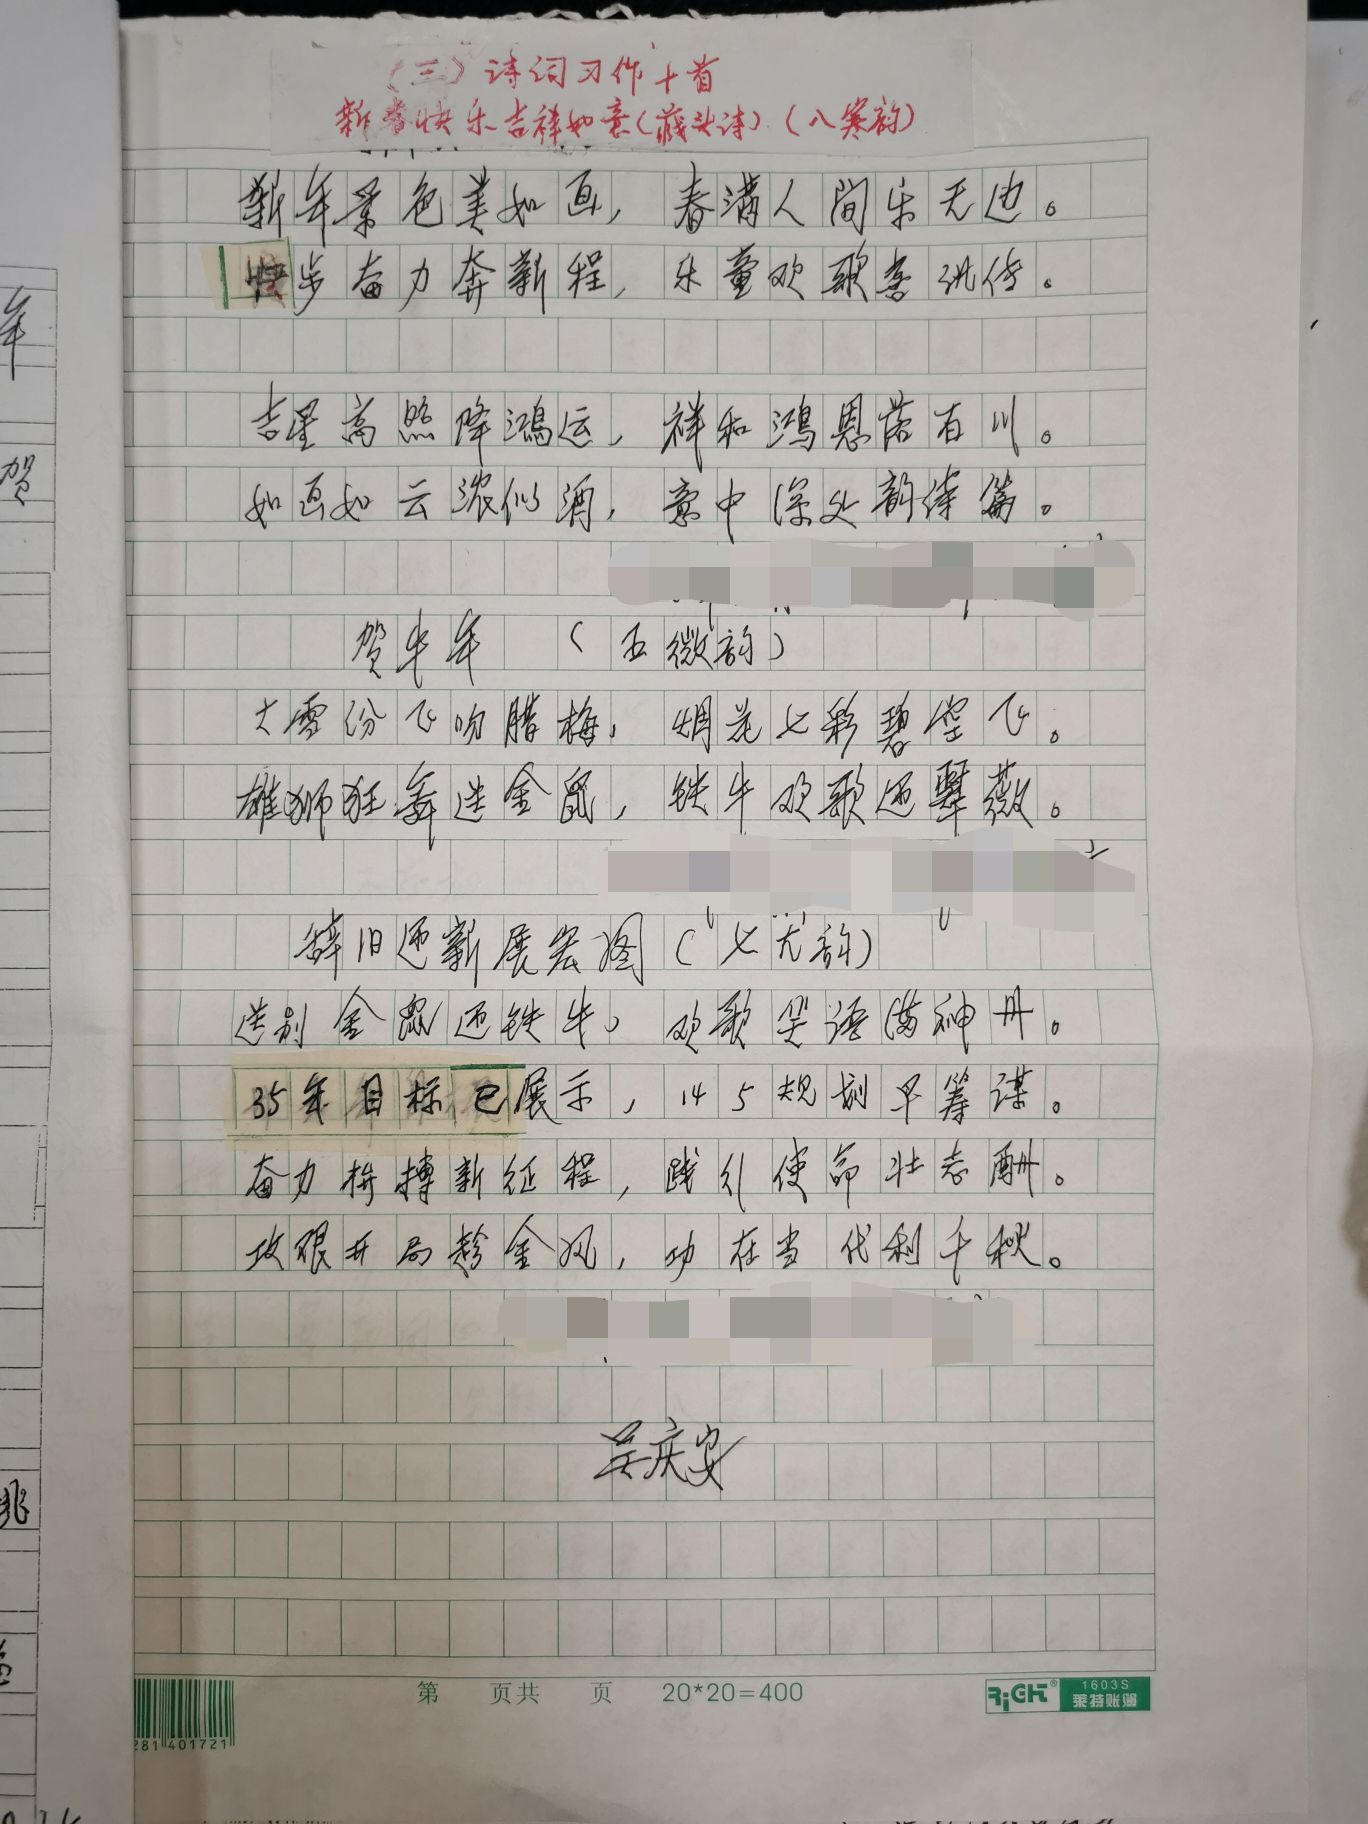 (三)诗词习作十首
新春快乐吉祥如意(藏头诗)(八寒韵)
新年景色美如画,春满人间乐无边。
快步奋力奔新程,乐童欢歌喜讯传。
吉星高照降鸿运,祥和鸿恩落百川。
如画如云浓似酒,意中深处韵诗篇。
贺牛年 (五微韵)
大雪份飞吻腊梅,烟花七彩碧空飞。
雄狮狂舞送金鼠,铁牛欢歌迎翠薇。
辞旧迎新展宏图(七尤韵)
送别金鼠迎铁牛,欢歌笑语满神丹。
35年目标已展示,14 5规划早筹谋。
奋力拚搏新征程,践行使命壮志酬。
攻艰开局趁金风,功在当代利千秋。
吴庆安
第 页共 页 20*20=400
RiGHT® 1603S
莱特账簿
281 401721
年
贺
兆